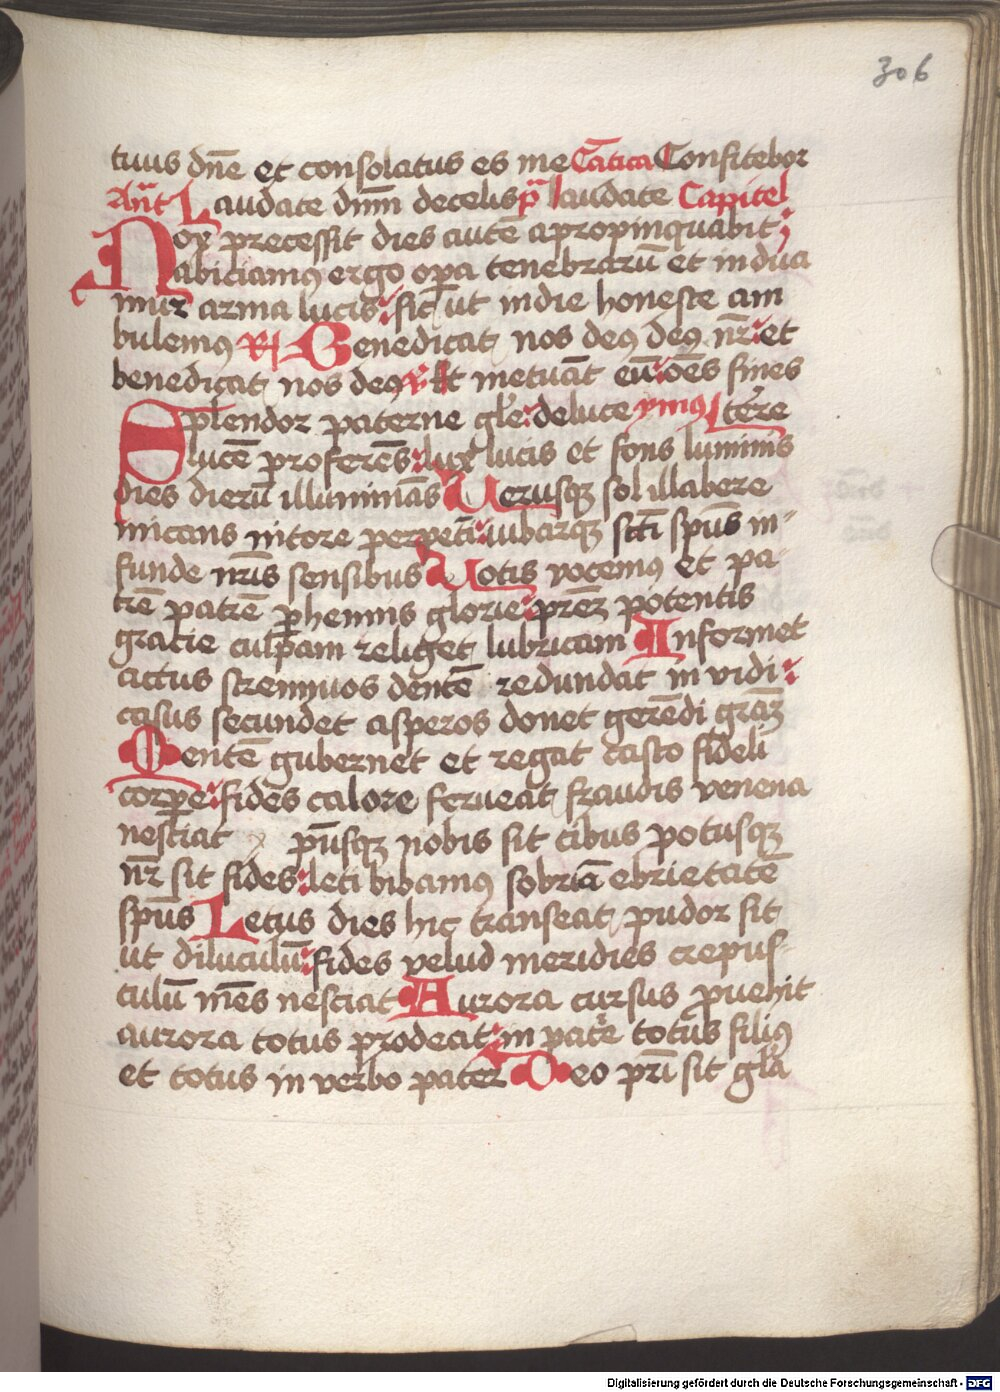 306
tuus dn̄e et consolatus es me Cātica Confitebor
An̄t Laudate dn̄m decelis p̄ laudate Capitel
Nox precessit dies autē apropinquabit
abiciamꝯ ergo op̄a tenebrarū et indua
mur arma lucis sic ut in die honeste am
bulemꝯ R Benedicat nos deꝯ deꝯ nr̄ et
benedicat nos deꝯ v Et metuāt eū oēs fines
Splendor paterne gl̄e de luce ymꝯ terre
lucē proferēs lux lucis et fons luminis
dies dierū illuminās Uerusqꝫ sol illabere
micans nitore perpeti iubarqꝫ sc̄ti sp̄us in-
funde nr̄is sensibus Uotis vocemꝯ et pa-
trē patrē p̄hennis glorie pr̄eꝫ potentis
gracie culpam religet lubricam Informet
actus strennuos dentē redundat in vidi
casus secundet asperos donet gerēdi grāꝫ
Mentē gubernet et regat casto fideli
corp̄e fides calore ferueat fraudis venena
nesciat xp̄usqꝫ nobis sit cibus potusqꝫ
nr̄ sit fides leti bibamꝯ sobriā ebrietatē
sp̄us Letus dies hic transeat pudor sit
ut diluculū fides velud meridies crepus-
culū mēs nesciat Aurora cursus puehit
aurora totus prodeat in patre totus filiꝯ
et totus in verbo pater Deo pr̄i sit gl̄a
Digitalisierung gefördert durch die Deutsche Forschungsgemeinschaft - DFG